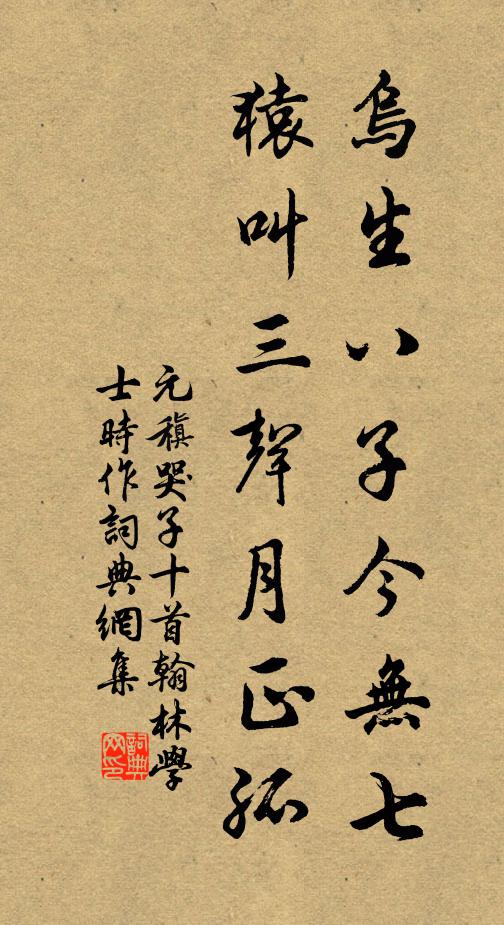 烏生八子今無七
猿叫三聲月正孤
元稹哭子十首翰林學
士時作詞典網集
詞典
网印